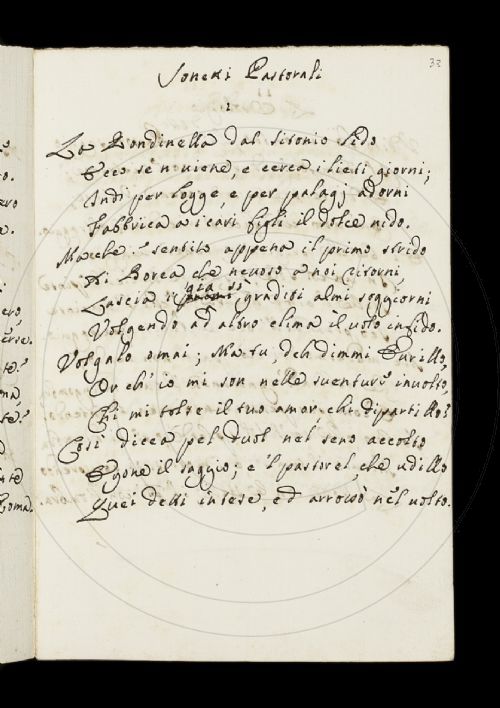 33
Sonetti Pastorali
1
La Rondinella dal sitonio lido
Ecco se n viene, e cerca i lieti giorni;
Indi per logge, e per palagj adorni
Fabbrica a i cari figli il dolce nido.
Ma che? sentito appena il primo strido
Di Borea che nevoso a noi ritorni,
Lascia i già sì graditi almi soggiorni
Volgendo ad altro clima il volo infido.
Volgalo omai; Ma tu, deh dimmi Eurillo,
Or ch' io mi son nelle sventure involto,
Chi mi tolse il tuo amor, chi dipartillo?
Così dicea pel duol nel seno accolto
Egone il saggio; e 'l pastorel, che udillo
Quei detti intese, ed arrossò nel volto.